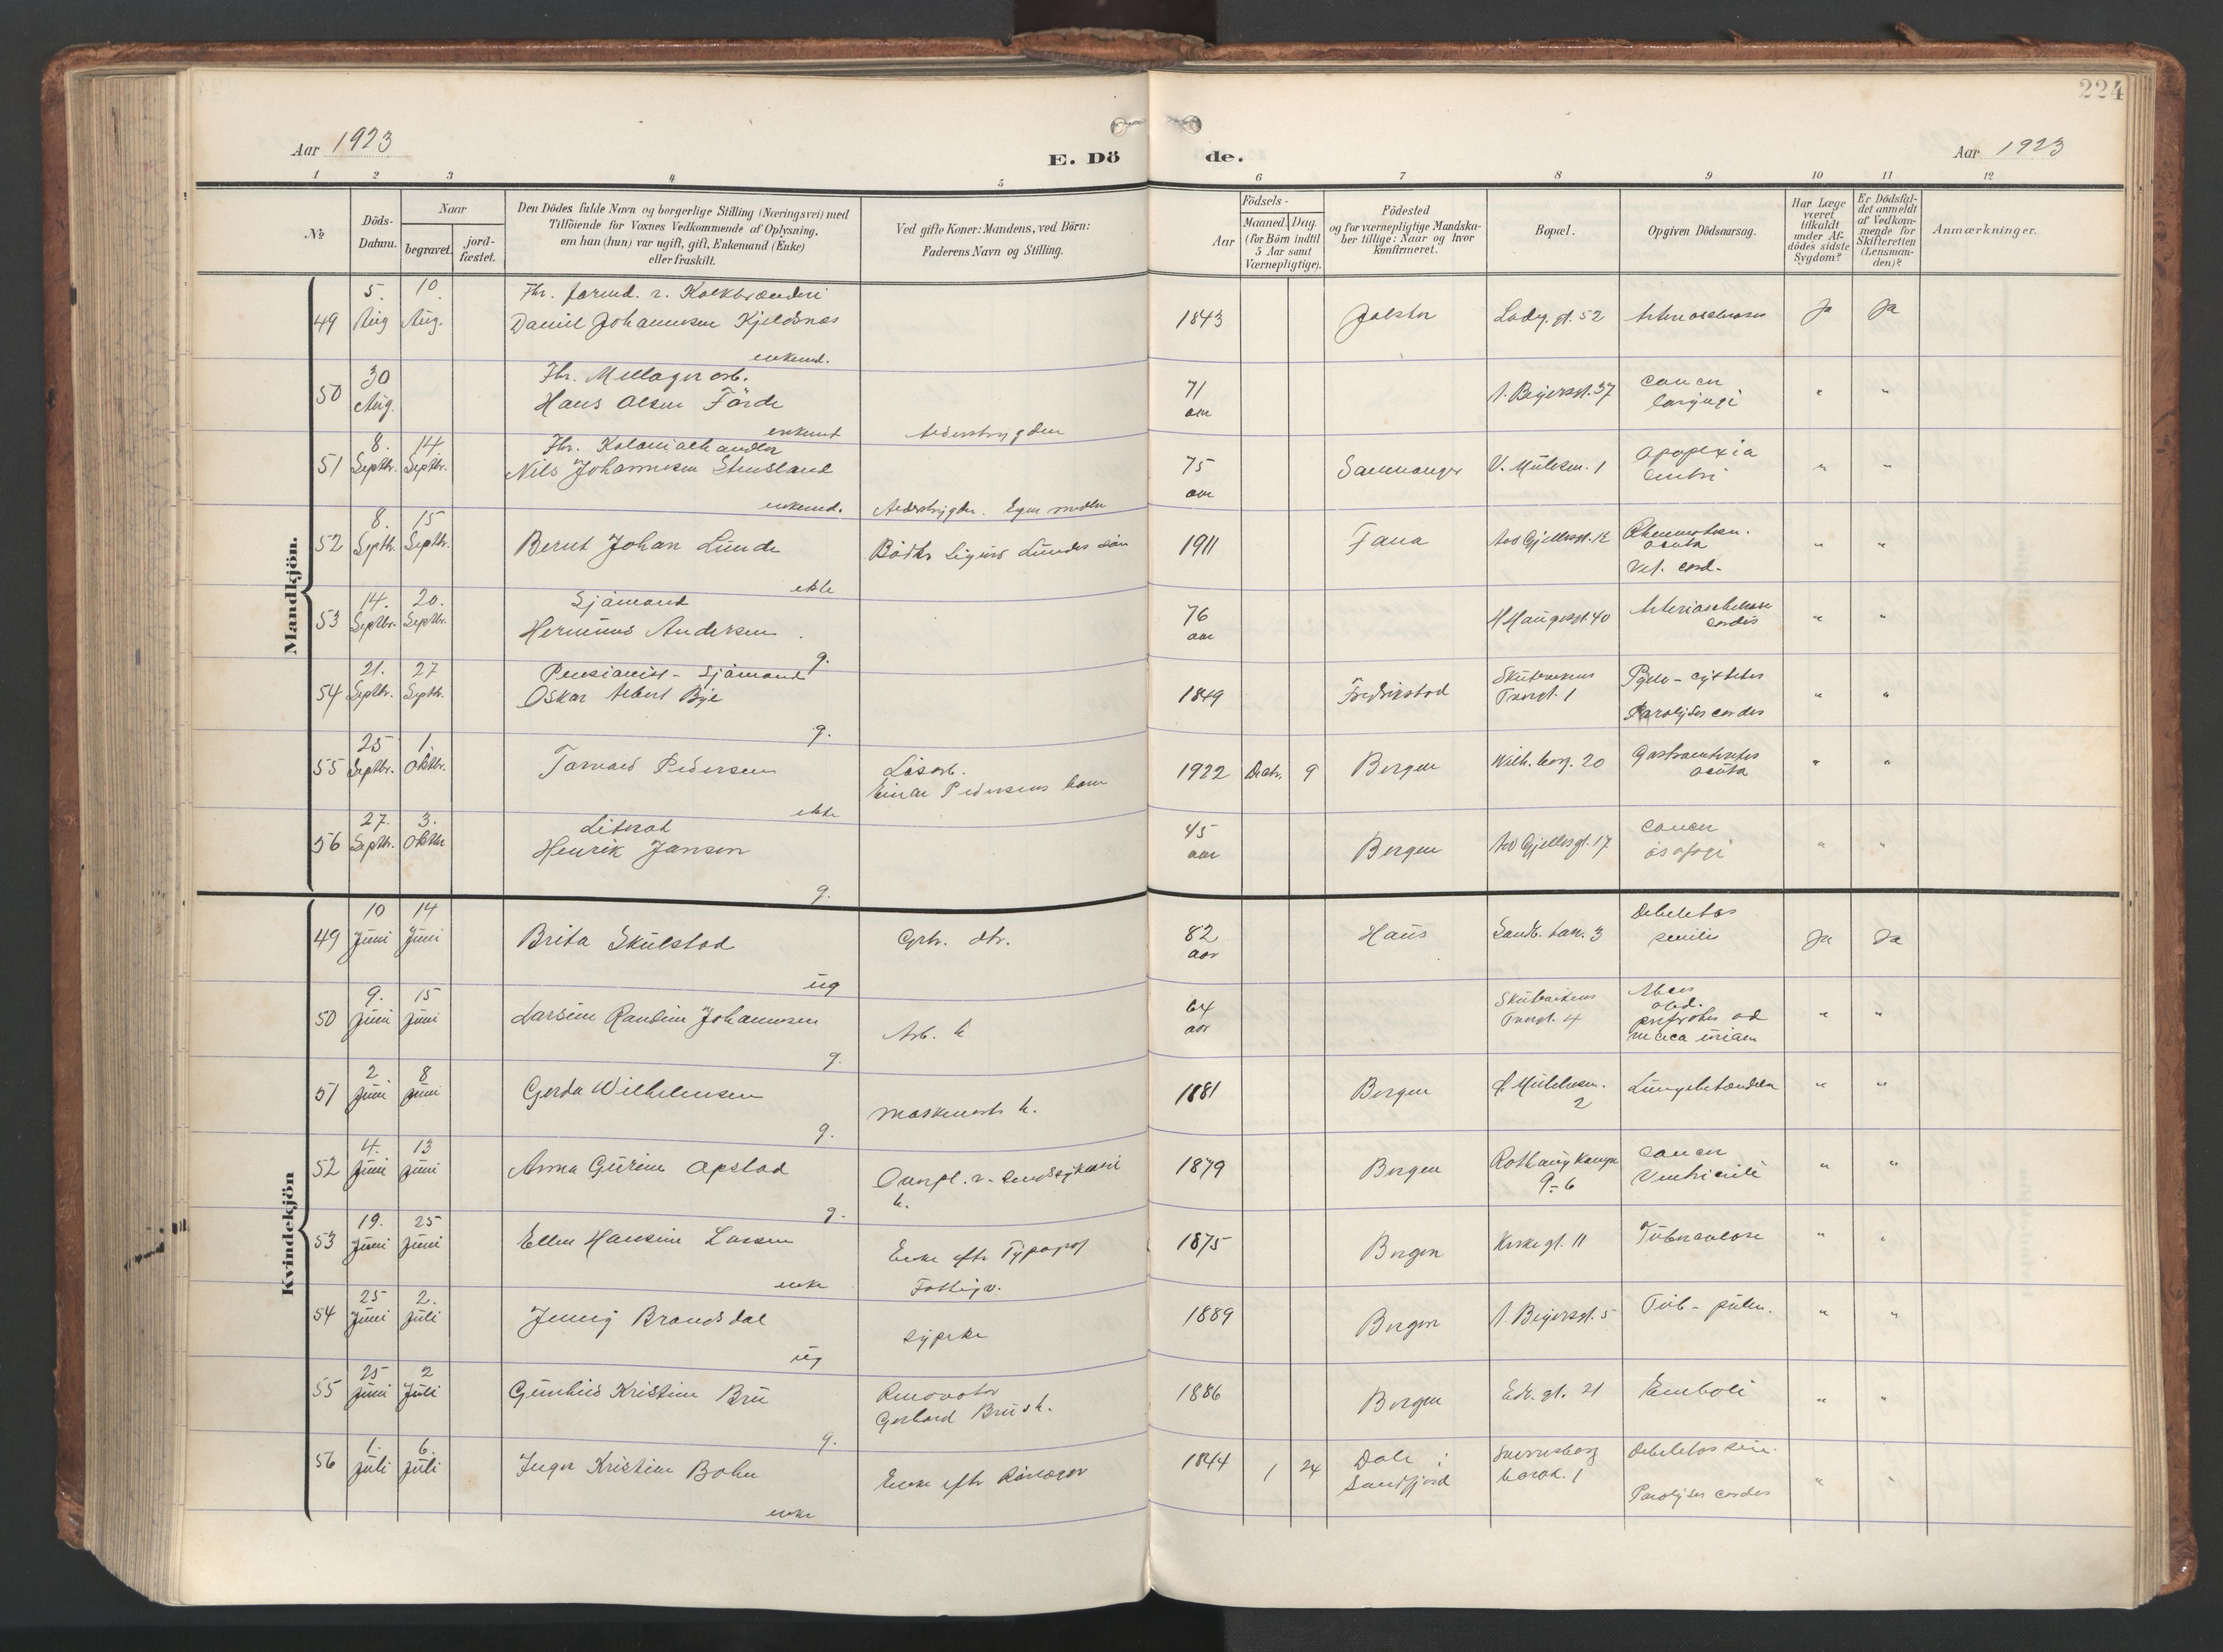 224
Aar 1923
E. Dö de.
Aar 1923
1 2 3 4 5 6 7 8 9 10 11 12
№
Döds-Datum.
Naar
begravet.
jord-fæstet.
Den Dödes fulde Navn og borgerlige Stilling (Næringsvei) med
Tilföiende for Voxnes Vedkommende af Oplysning,
om han (hun) var ugift, gift, Enkemand (Enke)
eller fraskilt.
Ved gifte Koner: Mandens, ved Börn:
Faderens Navn og Stilling.
Födsels-
Aar
Maaned. Dag.
(for Börn indtil
5 Aar samt
Værnepligtige).
Födested
og for værnepligtige Mandska-
ber tillige: Naar og hvor
konfirmeret.
Bopæl.
Opgiven Dödsaarsag.
Har Læge
været
tilkaldt
under Af-
dödes sidste
Sygdom?
Er Dödsfal-
det anmeldt
af Vedkom-
mende for
Skifteretten
(Lensman-
den)?
Anmærkninger.
Mandkjön.
49 5. Aug 10. Aug. Fhr. formd. v. Kalkbrænderi
Daniel Johannesen Kjeldsnes
enkemd.
1843 Jølster Ladeg. gt. 52 Arteriosclerose Ja Ja
50 30 Aug. Fhr.
Hans Olsen Förde
enkemt Alderstrygden
71 aar A. Beyersgt. 37 Cancer laryngi " "
51 8. Septbr. 14 Septbr. Fhr. Kolonialhandler
Nils Johannesen Stensland
enkemd. Alderstrygden. Egne midler
75 aar Samnanger V. Mülesm. 1 Apoplexia cerebri " "
52 8. Septb. 15 Septbr. Bernt Johan Lunde
ekte
Bödker Sigurd Lundes sön
1911 Fana Arb Gjellesgt. 12 acuta
Vit. cord. " "
53 14. Septbr. 20. Septbr. Sjömand
Herminus Andersen
g.
76 aar H Haugesgt. 40 Arteriosclerose cordis " "
54 21. Septbr. 27 Septb. Pensionist - Sjömand
Oskar Albert Bye
g.
1849 Fredrikstad Skutevikens
Tvergt. 1 Pyelo-cystitis
Paralysis cordis " "
55 25 Septbr. 1. Oktbr. Torvald Pedersen
ekte
Lösarb.
Einar Pedersens barn
1922 Decbr. 9 Bergen Wilh. berg. 20 Gastroenteritis
acuta " "
56 27. Septb. 3. Oktbr Literat
Henrik Jansen
g.
45 aar Bergen Arb Gjellesgt. 17 Cancer
ösofagi " "
Kvindekjön
49 10 Juni 14 Juni Brita Skulstad
ug
Grbr. dtr.
82 aar Haus Sandv. 3 Debilitas
senilis Ja Ja
50 9. Juni 15 Juni Larsine Randine Johannesen
g.
Arb. h
64 aar Skutevikens
Tvergt. 4 " "
51 2 Juni 8 Juni Gerda Wilhelmsen
g.
Maskinarb h.
1881 Bergen Ö. Mülehusm.
2 Lungebetændelse " "
52 4. Juni 13 Juni Anna Gurine Opstad
g.
h.
1879 Bergen Rothaugkaserne
9-6 Cancer
Ventriculi " "
53 19. Juni 25 Juni Ellen Hansine Larsen
enke
Enke eftr Typograf
Fattigv.
1875 Bergen Kirkegt. 11 Tuberculose " "
54 25 Juni 2. Juli Jenny Brandsdal
ug
sypike
1889 Bergen A. Beyersgt. 5 Tub-pulm. " "
55 25 Juni 2 Juli Gunhild Kristine Bru
g.
Renovatör
Gerhard Brus h.
1886 Bergen Edv. gt. 21 Emboli " "
56 1. Juli 6. Juli Inger Kristine Bohn
enke
Enke eftr
1844 1 24 Dale i
Sandfjord Sverresborg
barak. 1 Debilitas sen.
Paralysis cordis " "